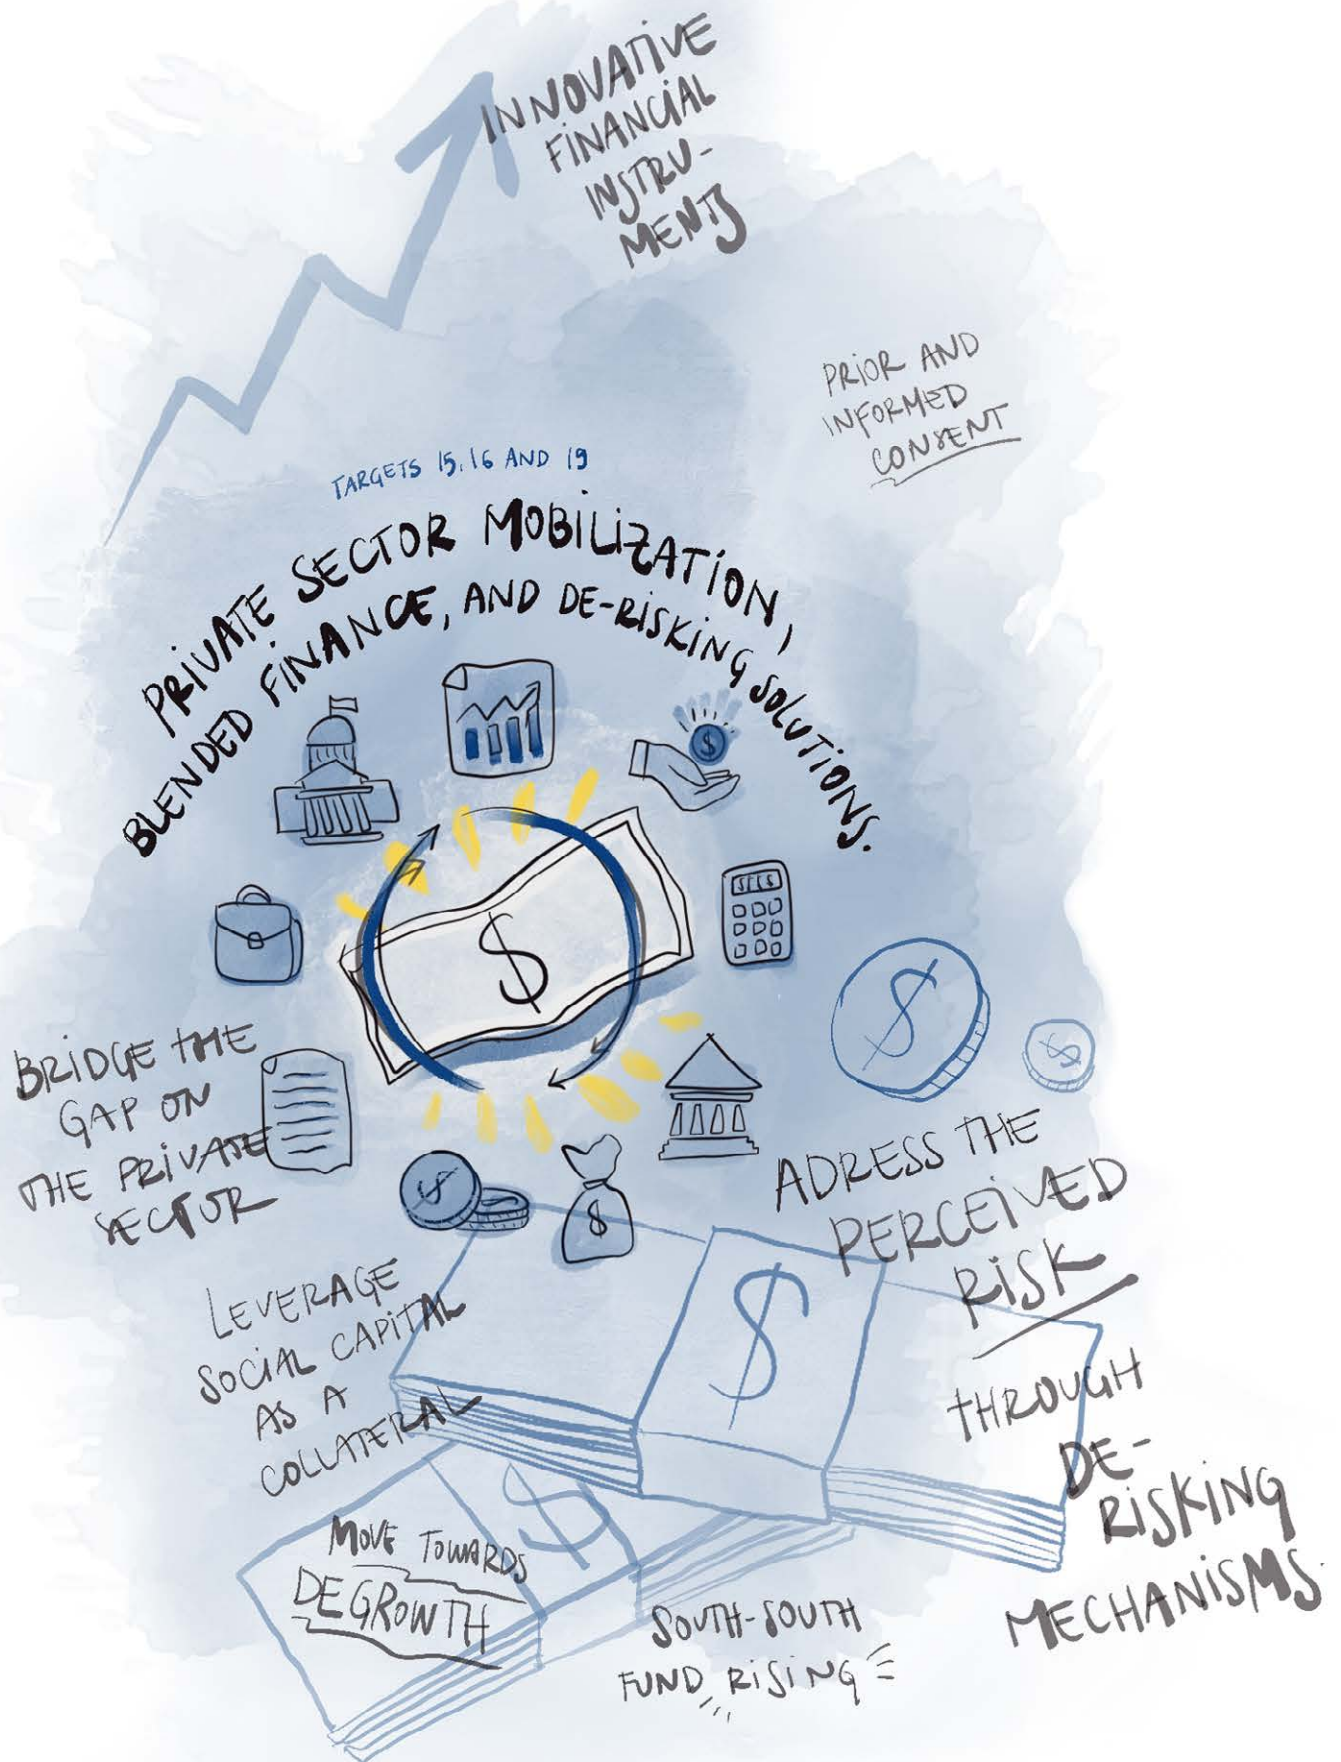 INNOVATIVE
FINANCIAL
INSTRU-
MENTS
PRIOR AND
INFORMED
CONSENT
TARGETS 15, 16 AND 19
PRIVATE SECTOR MOBILIZATION,
BLENDED FINANCE, AND DE-RISKING SOLUTIONS.
$
$
$
$
BRIDGE THE
GAP ON
THE PRIVATE
SECTOR
$
$
ADRESS THE
PERCEIVED
RISK
THROUGH
DE-
RISKING
MECHANISMS.
LEVERAGE
SOCIAL CAPITAL
AS A
COLLATERAL
$
$
MOVE TOWARDS
DEGROWTH
SOUTH-SOUTH
FUND RISING